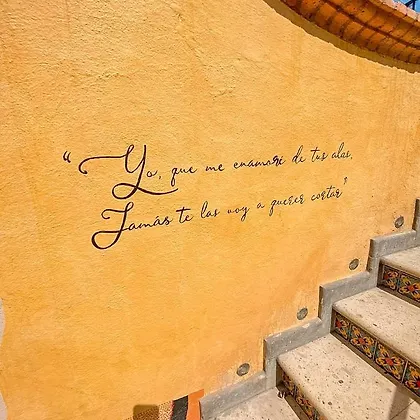 “Yo, que me enamoré de tus alas,
Jamás te las voy a querer cortar”